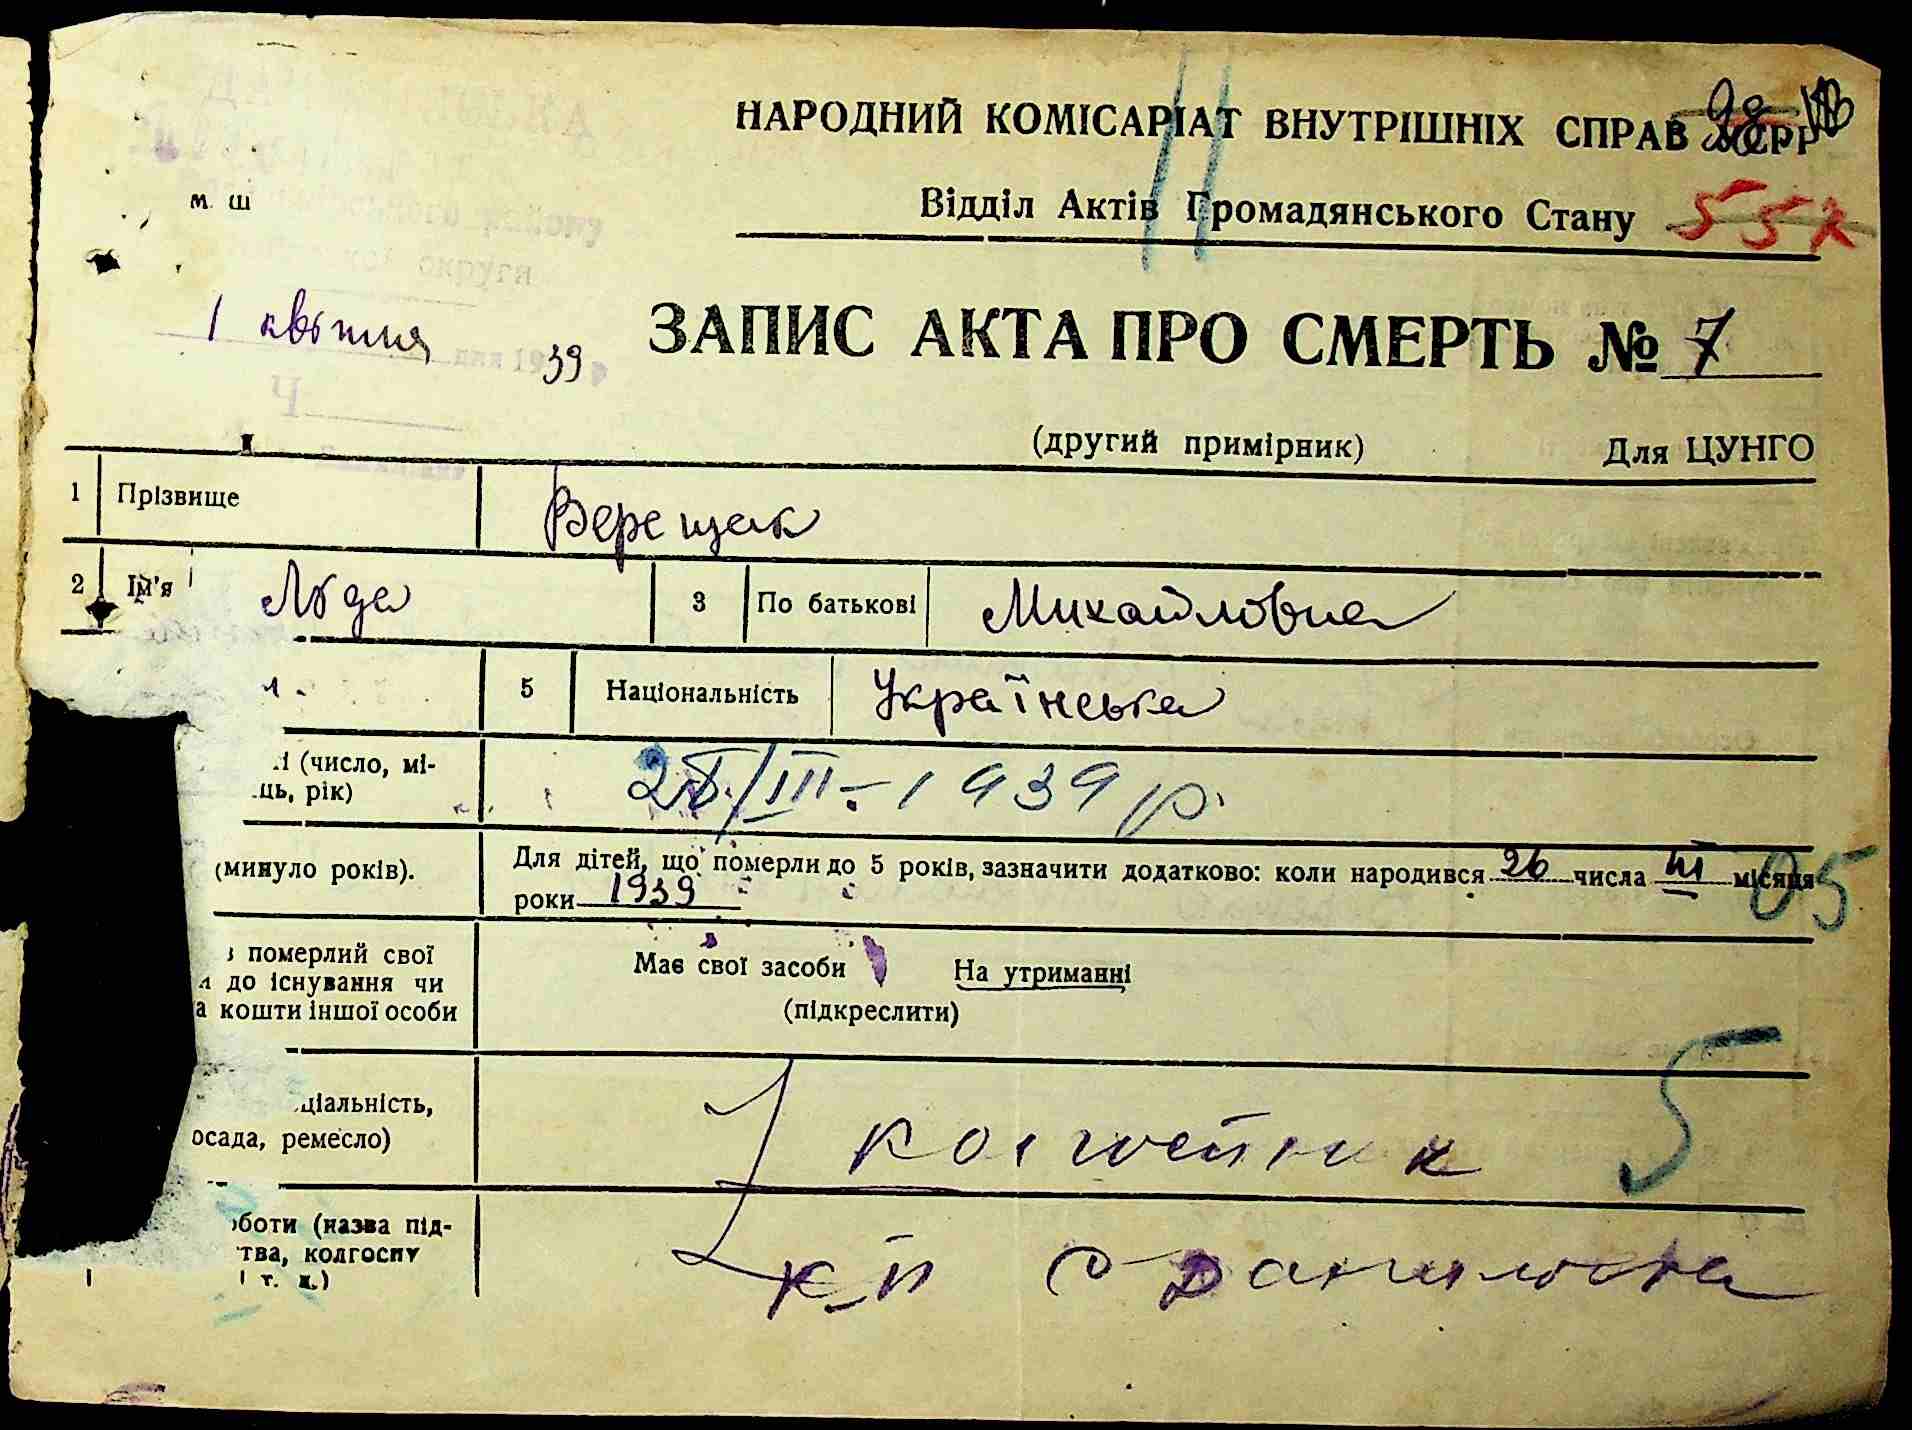 НАРОДНИЙ КОМІСАРІАТ ВНУТРІШНІХ СПРАВ УСРР
Відділ Актів Громадянського Стану
1 квітня 39
ЗАПИС АКТА ПРО СМЕРТЬ № 7
(другий примірник) Для ЦУНГО
1 Прізвище Верещак
2 Ім'я Ліда 3 По батькові Михайловна
5 Національність Українська
і (число, мі-
ць, рік)
/III - 1939 р.
(минуло років).
Для дітей, що померли до 5 років, зазначити додатково: коли народився 26 числа III місяця
роки 1939
05
в померлий свої
и до існування чи
а кошти іншої особи
Має свої засоби На утриманні
(підкреслити)
ціальність,
осада, ремесло)
колгоспник
5
оботи (назва під-
тва, колгоспу
і т. д.)